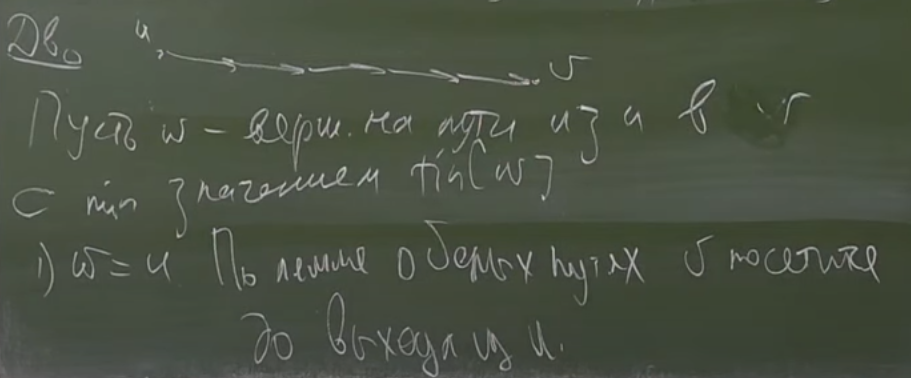 Дво
u v
Пусть w – верш. на пути из u в v
с min значением tin[w]
1) w = u По лемме о белых путях v посетится
до выхода из u.